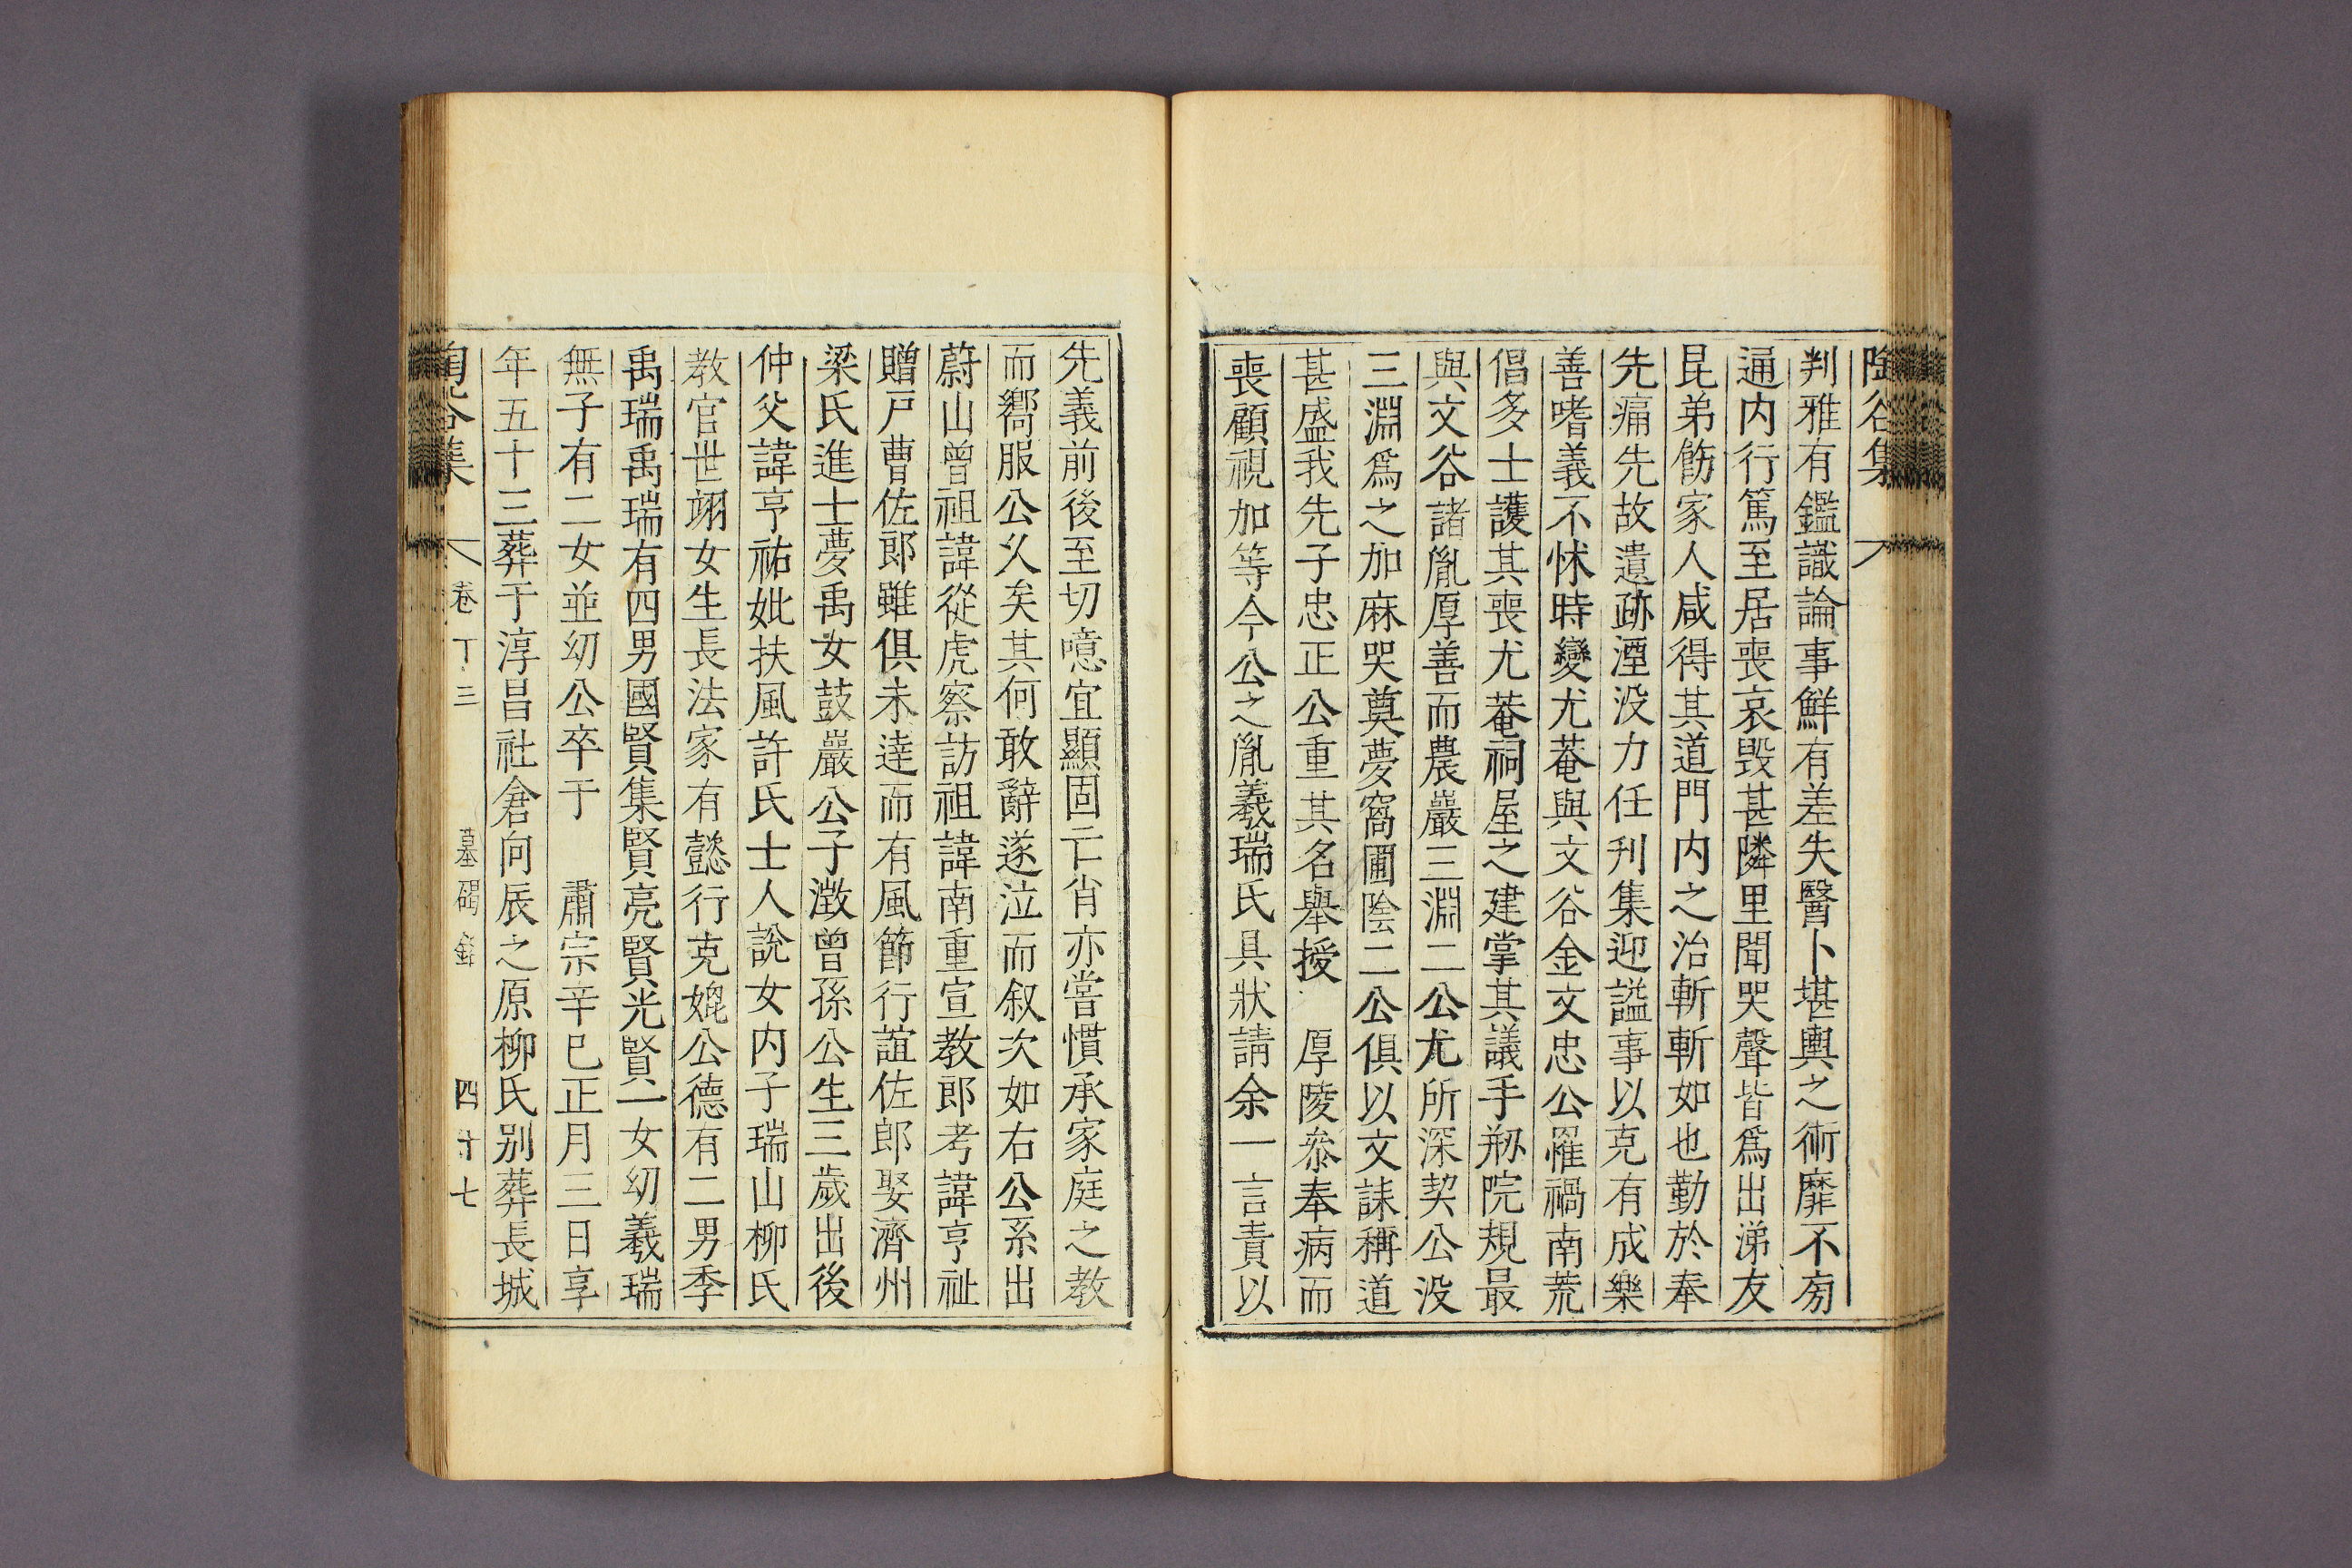 陶谷集
判雅有鑑識論事鮮有差失醫卜堪輿之術靡不旁
通内行篤至居喪哀毁甚隣里聞哭聲皆爲出涕友
昆弟飭家人咸得其道門内之治斬斬如也勤於奉
先痛先故遺跡湮没力任刋集迎謚事以克有成樂
善嗜義不怵時變尤菴與文谷金文忠公罹禍南荒
倡多士護其喪尤菴祠屋之建掌其議手刱院規最
與文谷諸胤厚善而農巖三淵二公尤所深契公没
三淵爲之加麻哭奠夢窩圃陰二公俱以文誄稱道
甚盛我先子忠正公重其名舉授　厚陵叅奉病而
喪顧視加等今公之胤羲瑞氏具狀請余一言責以
先義前後至切噫宜顯固亡肖亦嘗慣承家庭之教
而嚮服公久矣其何敢辭遂泣而叙次如右公系出
蔚山曾祖諱從虎察訪祖諱南重宣教郎考諱亨祉
贈戸曹佐郎雖俱未逹而有風節行誼佐郎娶濟州
梁氏進士夢禹女鼓巖公子澂曾孫公生三歲出後
仲父諱亨祐妣扶風許氏士人説女内子瑞山柳氏
教官世翊女生長法家有懿行克媲公德有二男季
禹瑞禹瑞有四男國賢集賢亮賢光賢一女幼羲瑞
無子有二女並幼公卒于　肅宗辛巳正月三日享
年五十三葬于淳昌社倉向辰之原柳氏别葬長城
陶谷集　卷丁三　墓碣銘　四十七